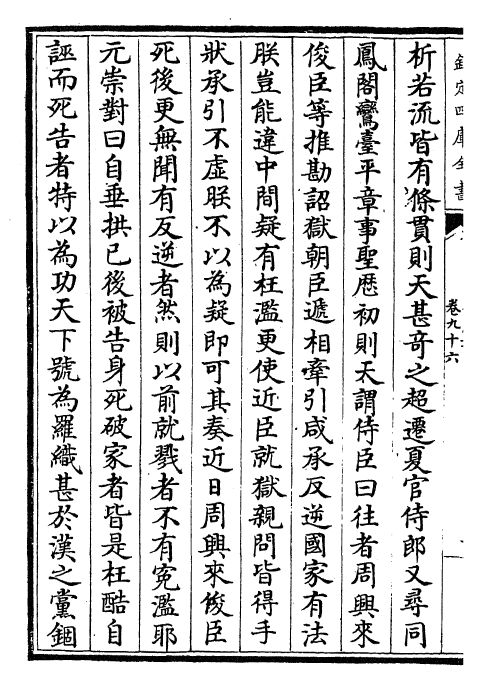 欽定四庫全書
卷九十六
析若流皆有條貫則天甚奇之超遷夏官侍郎又尋同
鳳閣鸞臺平章事聖歴初則天謂侍臣曰往者周興來
俊臣等推勘詔獄朝臣遞相牽引咸承反逆國家有法
朕豈能違中間疑有枉濫更使近臣就獄親問皆得手
狀承引不虛朕不以為疑即可其奏近日周興來俊臣
死後更無聞有反逆者然則以前就戮者不有冤濫耶
元崇對曰自垂拱已後被告身死破家者皆是枉酷自
誣而死告者特以為功天下號為羅織甚於漢之黨錮